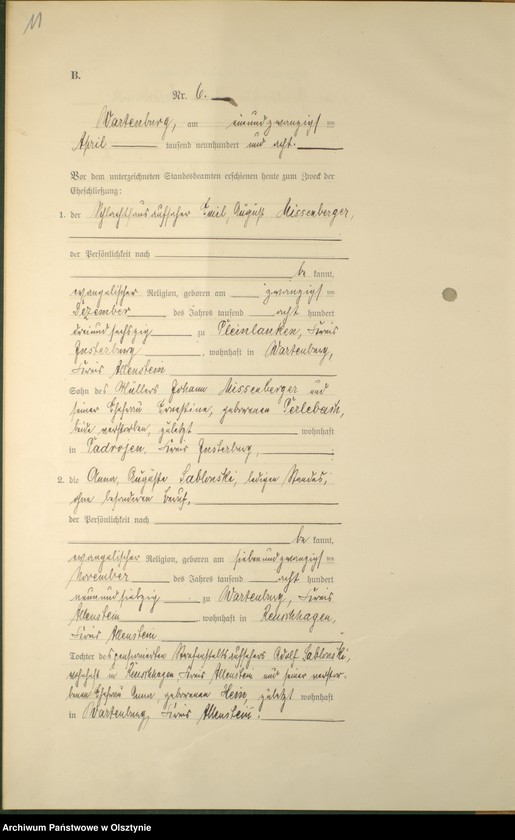 11
B.
Nr. 6.
Wartenburg, am einundzwanzigsten
April tausend neunhundert und acht.
Vor dem unterzeichneten Standesbeamten erschienen heute zum Zweck der
Eheschließung:
1. der Schlachthausaufseher Emil, August Missenberger,
der Persönlichkeit nach
be kannt,
evangelischer Religion, geboren am zwanzigsten
Dezember des Jahres tausend acht hundert
dreiundsechzig zu Pleinlauken, Kreis
Insterburg, wohnhaft in Wartenburg,
Kreis Allenstein
Sohn des Müllers Johann Missenberger und
seiner Ehefrau Ernestine, geborenen
beide verstorben, zuletzt wohnhaft
in Padrojen, Kreis Insterburg,
2. die Anna, Auguste Sablonski, ledigen Standes,
ohne besonderen Beruf,
der Persönlichkeit nach
be kannt,
evangelischer Religion, geboren am siebenundzwanzigsten
November des Jahres tausend acht hundert
neunundsiebzig zu Wartenburg, Kreis
Allenstein, wohnhaft in Reuschhagen,
Kreis Allenstein
Tochter des pensionierten Strafanstaltsaufsehers Adolf Sablonski,
wohnhaft in Reuschhagen Kreis Allenstein und seiner verstor-
benen Ehefrau Anna, geborenen Hein, zuletzt wohnhaft
in Wartenburg, Kreis Allenstein.
Archiwum Państwowe w Olsztynie